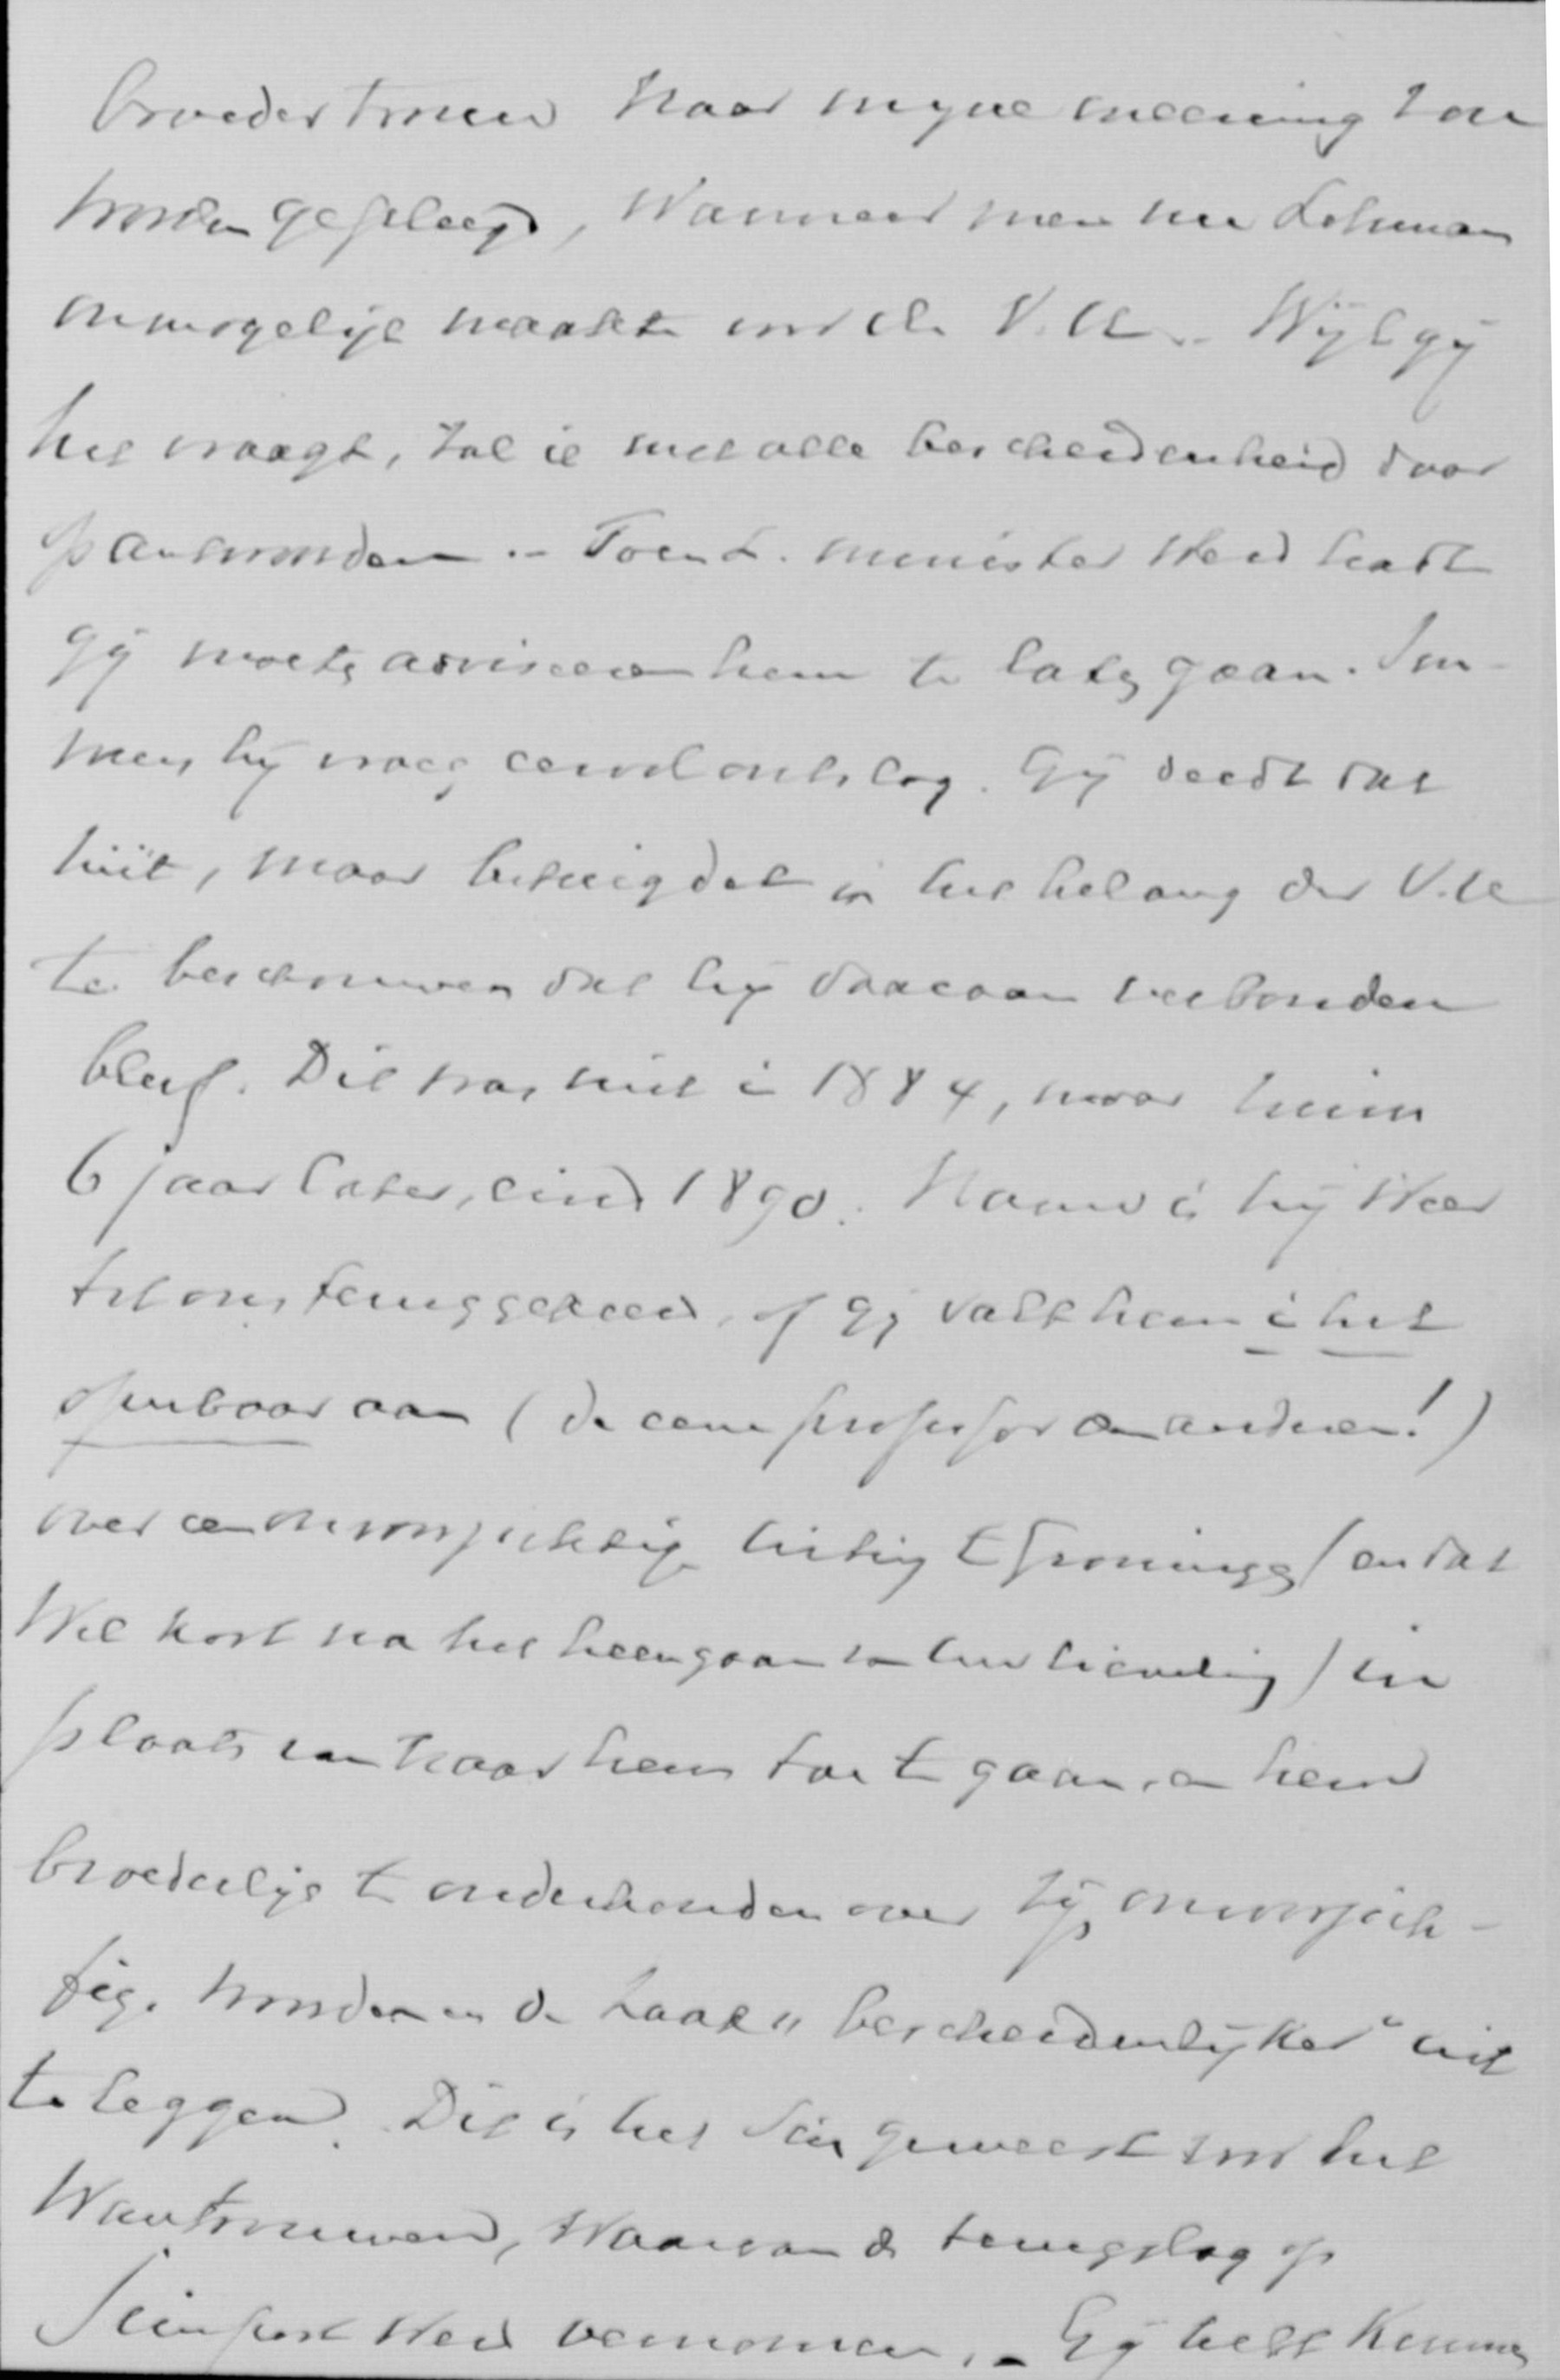 broedertrouw naar myne meening zou
worden gepleegd, wanneer men nu Lohman
onmogelijk maakte voor de V.U. - Wijl gij
het vraagt, zal ik met alle bescheidenheid daar
op antwoorden. - Toen L. minister werd hadt
gij moeten adviseeren hem te laten gaan.
hij vroeg eervol ontslag. Gij deedt dat
niet, maar betuigdet in het belang der V.U.
te beschouwen dat hij daaraan verbonden
bleef. Dit was niet in 1884, maar ruim
6 jaar later, eind 1890. Nauw is hij weer
tot ons teruggekeerd, of gij valt hem in het
openbaar aan (de eene professor den anderen!)
over een onvoorzichtige uiting te Groningen (en dat
wel kort na het heengaan van uw lieveling) in
plaats van naar hem toe te gaan, en hem
broederlijk te onderhouden over zijn onvoorzich-
tige woorden en de zaak "bescheidenlijker" uit
te leggen. Dit is het sein geweest voor het
wantrouwen, waarvan de terugslag op
Seinpost werd vernomen. - Gij hebt kunnen